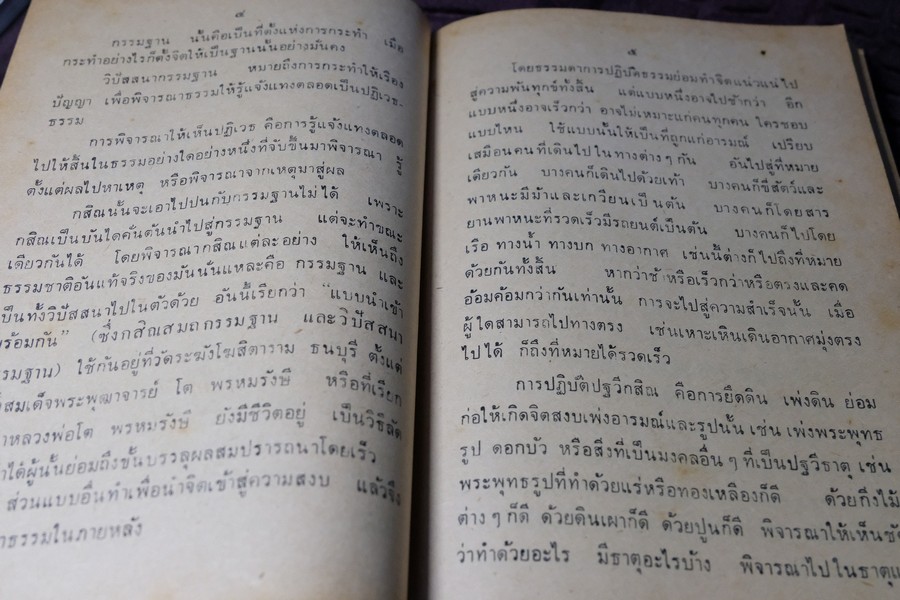 ๔
กรรมฐาน นั้นคือเป็นที่ตั้งแห่งการกระทำ เมื่อ
กระทำอย่างไรก็ตั้งจิตให้เป็นฐานนั้นอย่างมั่นคง
วิปัสสนากรรมฐาน หมายถึงการกระทำให้เรือง
ปัญญา เพื่อพิจารณาธรรมให้รู้แจ้งแทงตลอดเป็นปฏิเวธ-
ธรรม
การพิจารณาให้เห็นปฏิเวธ คือการรู้แจ้งแทงตลอด
ไปให้สิ้นในธรรมอย่างใดอย่างหนึ่งที่จับขึ้นมาพิจารณา รู้
ตั้งแต่ผลไปหาเหตุ หรือพิจารณาจากเหตุมาสู่ผล
กสิณนั้นจะเอาไปปนกับกรรมฐานไม่ได้ เพราะ
กสิณเป็นบันไดคั่นต้นนำไปสู่กรรมฐาน แต่จะทำขณะ
เดียวกันได้ โดยพิจารณากสิณแต่ละอย่าง ให้เห็นถึง
ธรรมชาติอันแท้จริงของมันนั่นแหละคือ กรรมฐาน และ
เป็นทั้งวิปัสสนาไปในตัวด้วย อันนี้เรียกว่า “แบบนำเข้า
พร้อมกัน” (ซึ่งกสิณสมถกรรมฐาน และวิปัสสนา
รมฐาน) ใช้กันอยู่ที่วัดระฆังโฆสิตาราม ธนบุรี ตั้งแต่
สมเด็จพระพุฒาจารย์ โต พรหมรังษี หรือที่เรียก
าหลวงพ่อโต พรหมรังษี ยังมีชีวิตอยู่ เป็นวิธีลัด
าได้ผู้นั้นย่อมถึงขั้นบรรลุผลสมปรารถนาโดยเร็ว
ส่วนแบบอื่นทำเพื่อนำจิตเข้าสู่ความสงบ แล้วจึง
าธรรมในภายหลัง
๕
โดยธรรมดาการปฏิบัติธรรมย่อมทำจิตแน่วแน่ไป
สู่ความพ้นทุกข์ทั้งสิ้น แต่แบบหนึ่งอาจไปช้ากว่า อีก
แบบหนึ่งอาจเร็วกว่า อาจไม่เหมาะแก่คนทุกคน ใครชอบ
แบบไหน ใช้แบบนั้นให้เป็นที่ถูกแก่อารมณ์ เปรียบ
เสมือนคนที่เดินไปในทางต่างๆกัน อันไปสู่ที่หมาย
เดียวกัน บางคนก็เดินไปด้วยเท้า บางคนก็ขี่สัตว์และ
พาหนะมีม้าและเกวียนเป็นต้น บางคนก็โดยสาร
ยานพาหนะที่รวดเร็วมีรถยนต์เป็นต้น บางคนก็ไปโดย
เรือ ทางน้ำ ทางบก ทางอากาศ เช่นนี้ต่างก็ไปถึงที่หมาย
ด้วยกันทั้งสิ้น หากว่าช้าหรือเร็วกว่าหรือตรงและคด
อ้อมค้อมกว่ากันเท่านั้น การจะไปสู่ความสำเร็จนั้น เมื่อ
ผู้ใดสามารถไปทางตรง เช่นเหาะเหินเดินอากาศมุ่งตรง
ไปได้ ก็ถึงที่หมายได้รวดเร็ว
การปฏิบัติปฐวีกสิณ คือการยึดดิน เพ่งดิน ย่อม
ก่อให้เกิดจิตสงบเพ่งอารมณ์และรูปนั้น เช่น เพ่งพระพุทธ
รูป ดอกบัว หรือสิ่งที่เป็นมงคลอื่นๆที่เป็นปฐวีธาตุ เช่น
พระพุทธรูปที่ทำด้วยแร่หรือทองเหลืองก็ดี ด้วยกิ่งไม้
ต่างๆก็ดี ด้วยดินเผาก็ดี ด้วยปูนก็ดี พิจารณาให้เห็นชัด
ว่าทำด้วยอะไร มีธาตุอะไรบ้าง พิจารณาไปในธาตุแ